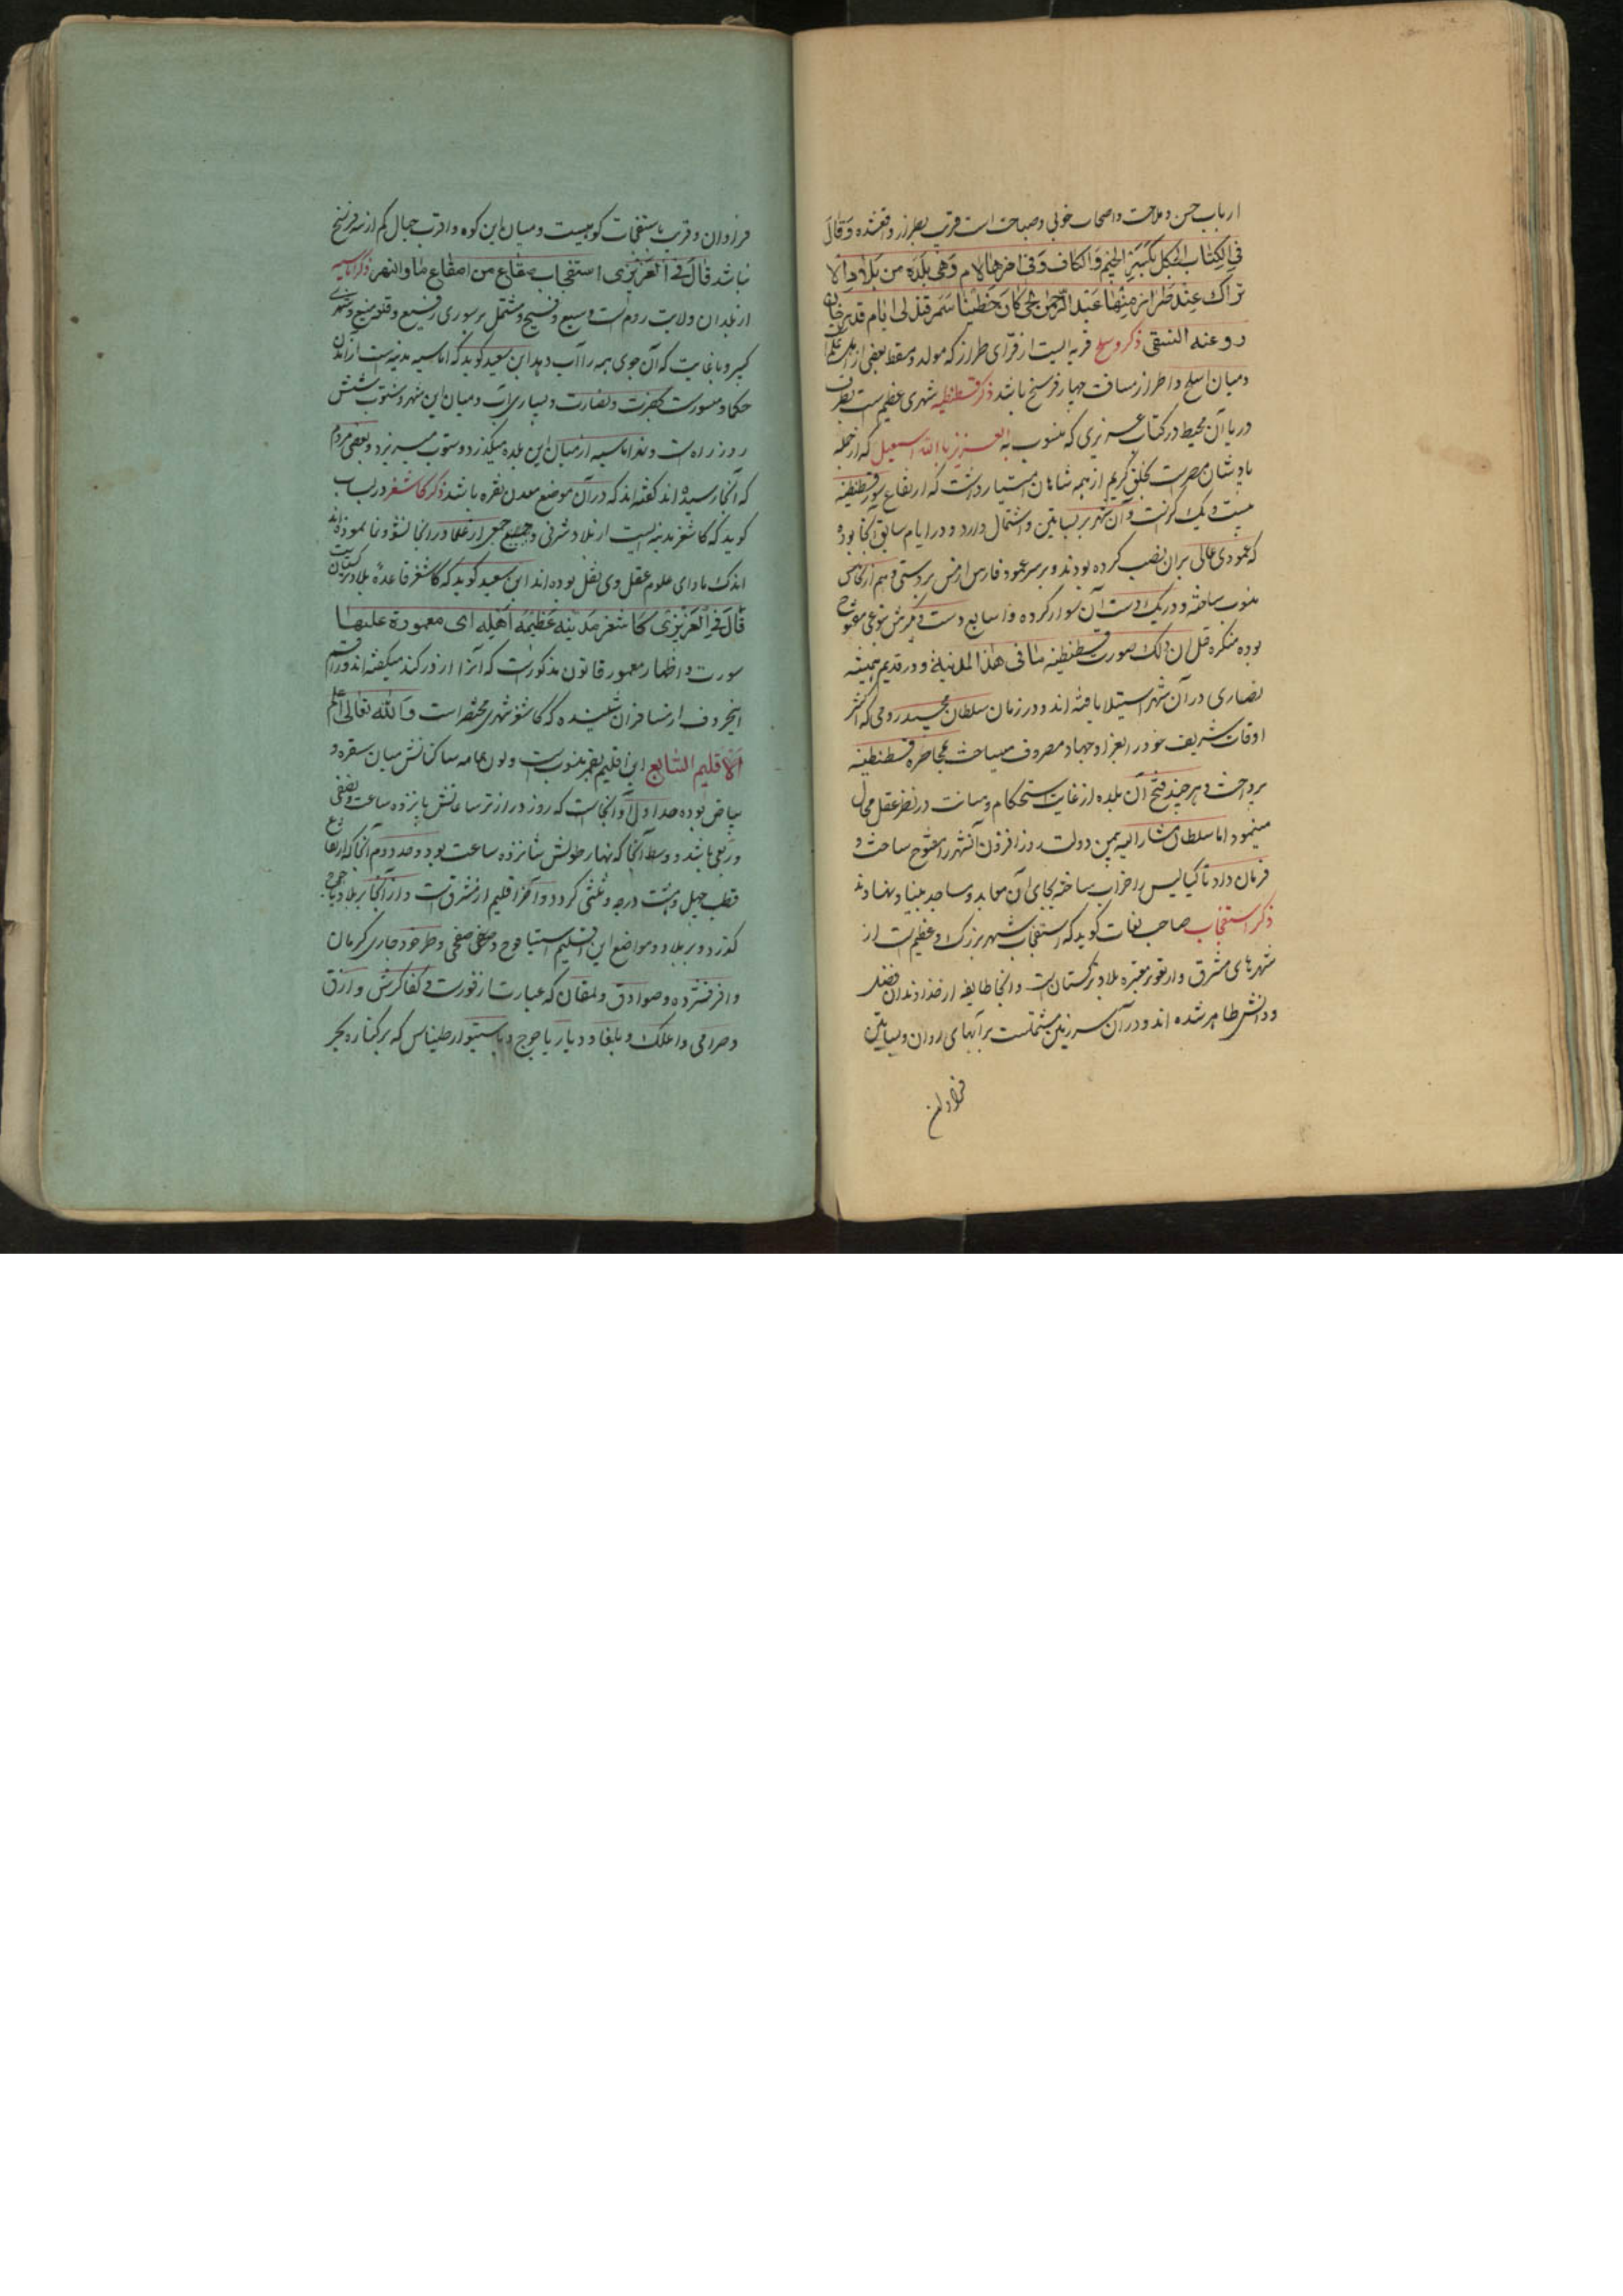 ارباب حسن و ملاحت و اصحاب خوبی و صباحت است قریب بطراز واقعشده وقال
فی الکتاب الجکل بکسر الجیم والکاف وفی اخرها لام وهی بلدة من بلاد الا
تراک عند طراز منها عبد الرحمن یحی کان خطیبا سمرقند لی ایام قدرخان
روعنه النسفی ذکر وسلج قریه ایست از قرای طراز که مولد و مسقط بعضی از علما
و میان اسلج و اطراز مسافت چهار فرسخ باشد ذکر قسطنطنیه شهری عظیم است بطرف
دریا آن محیط در کتاب عزیزی که منسوب به العزیز بالله اسمعیل که از جمله
پادشان مصرست بخلق کریم از همه شاهان امتیار داشت که ارتفاع سور قسطنطنیه
بیست و یک گزست و آن شهر بر بساتین و اشتمال دارد و در ایام سابق آنجا بوده
که عمودی عالی بران نصب کرده بودند و بر سر عمود فارس و فرس بر دستی و هم از نحاس
منوب ساخته و در یک دست آن سوار کرده و اصابع دست دیگرش بنوعی مفتوح
بوده منکره قل ان ذلک صورت قسطنطنیه بنا فی هذا المدنیة و در قدیم همیشه
نصاری در آن شهر استیلا یافته اند و در زمان سلطان محمد رومی که اکثر
اوقات شریف خود را بغزا و جهاد مصروف میساخت بمحاضره قسطنطنیه
پرداخت و هر چند فتح آن بلده از غایت استحکام و متانت در نظر عقل محال
مینمود اما سلطان مشار الیه بیمن دولت روز افزون آنشهر را مفتوح ساخت و
فرمان داد تا کنایس را خراب ساخته بجای آن معابد و مساجد بنیاد نهادند
ذکر اسفنجاب صاحب لغات کوید که اسفنجاب شهر بزرک و عظیم است از
شهرهای مشرق و از ثغور معتبره بلاد ترکستان است و آنجا طایفه از خداوندان فضل
و دانش ظاهر شده اند و در آن سرزمین مشتملست بر آبهای روان و بساتین
فراوان
فراوان و قریب باسفنجاب کوهیست و میان این کوه و اقرب جبال کم از سه فرسخ
نباشد قال فی العزیزی اسفنجاب صقاع من اصقاع ماوالنهر ذکر اماسیه
از بلدان ولایت روم است وسیع و فسیح و مشتمل بر سوری رفیع و قلعه منیع و شهری
کبیر و باغایت که آن جوی همه را آب دهد ابن سعید کوید که اماسیه مدینه است از مدن
حکما و مسورست بکثرت و نضارت و بسیاری آب و میان این شهر و سنوب شش
روز راه است و نهر اماسیه از میان این بلده میکذرد و بسنوب میریزد و بعضی مردم
که آنجا رسیده اند کفته اند که در آن موضع معدن نقره باشد ذکر کاشغر در لباب
کوید که کاشغر مدینه ایست از بلاد شرقی و جمیع جمعی از علما در آنجا نشو و نما نموده اند
اند که مادای علوم عقل وی نقل بوده اند ابن سعید کوید که کاشغر قاعده بلاد ترکستان است
قال فی العزیزی کاشغر مدینه عظیمه اهله ای معموده علیها
سورت و اظهار معمور قانون مذکورست که آنرا اردرکند میکفته اند و راقم
اینحروف از مسافران شنیده که کاشغر شهری مختصر است والله تعالی اعلم
الاقلیم السابع این اقلیم بقمر منسوب است و لون عامه ساکنانش میان سقره و
بیاض بوده حد اول آن آنجاست که روز درازتر ساعاتش پانزده ساعت و نصفی
و ربعی باشد و وسط آنجا که نهار طولش شانزده ساعت بود و حد دوم آنجا که ارتفاع
قطب چهل و هشت درجه و ثلثی کردد و آغاز اقلیم از مشرق است و از آنجا بر بلاد یاجوج
کذرد و بر بلاد و مواضع این اقلیم استیا فوج و صلغی صفحی و طرخود جاری کرمان
و افرفنترده و صوادق و لمقان که عبارت از فورت و کفاکرش و ازق
و صرامی و اعلک و بلغار و دیار یاجوج و باستیو ارطیناس که بر کناره بحر